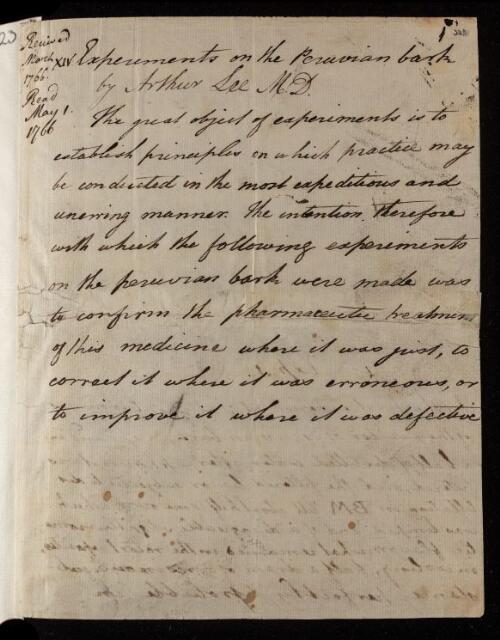 Received
March
1766.
Read
May 1.
1766
XIV Experiments on the Peruvian bark
by Arthur Lee M.D.
The great object of experiments is to
establish principles on which practice may
be conducted in the most expeditious and
unerring manner. The intention therefore
with which the following experiments
on the peruvian bark were made was
to confirm the pharmaceutic treatment
of this medicine where it was just, to
correct it where it was erroneous, or
to improve it where it was defective